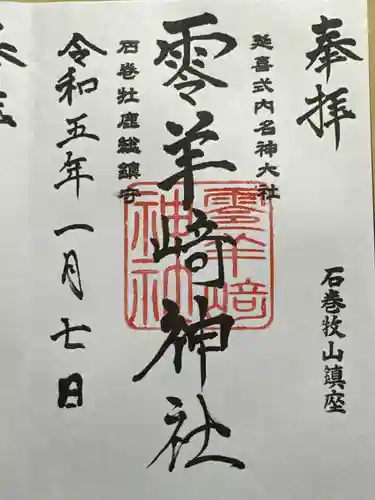 奉拝
石巻牧山鎮座
延喜式内名神大社
零羊崎神社
石巻牡鹿総鎮守
零羊崎
神社
令和五年一月七日